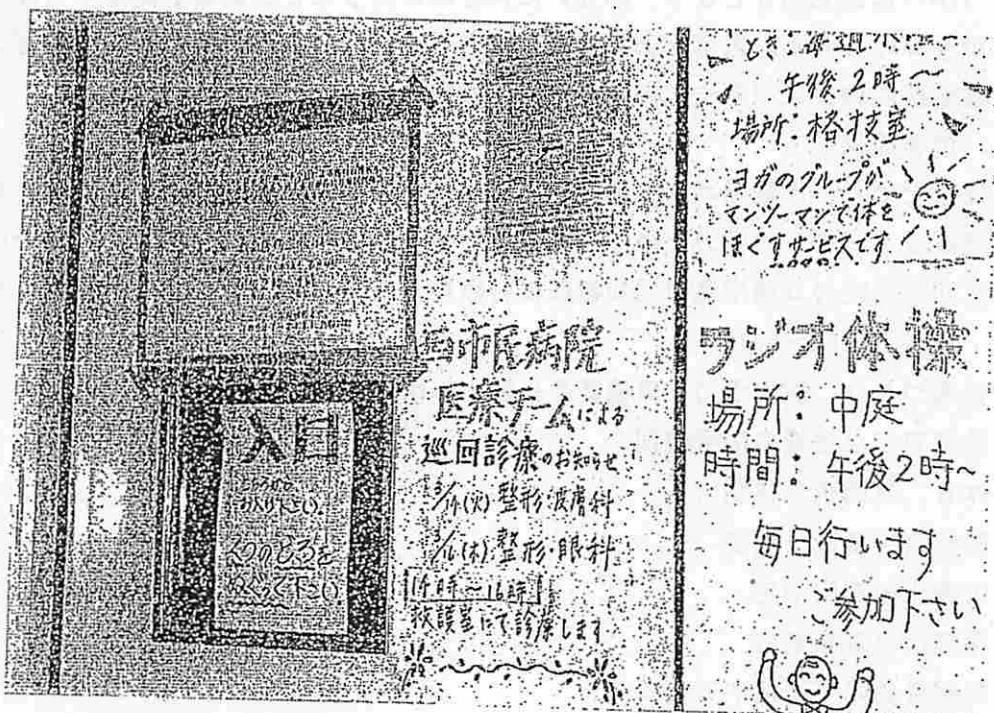 入口
こちらから
お入り下さい。
くつのどろを
ぬぐって下さい
市民病院
医療チームによる
巡回診療のお知らせ
(火) 整形・皮膚科
(木) 整形・眼科
14時~16時
救護室にて診療します
午後2時~
場所:格技室
ヨガのグループが
マンツーマンで体を
ほぐすサービスです
ラジオ体操
場所:中庭
時間:午後2時~
毎日行います
ご参加下さい